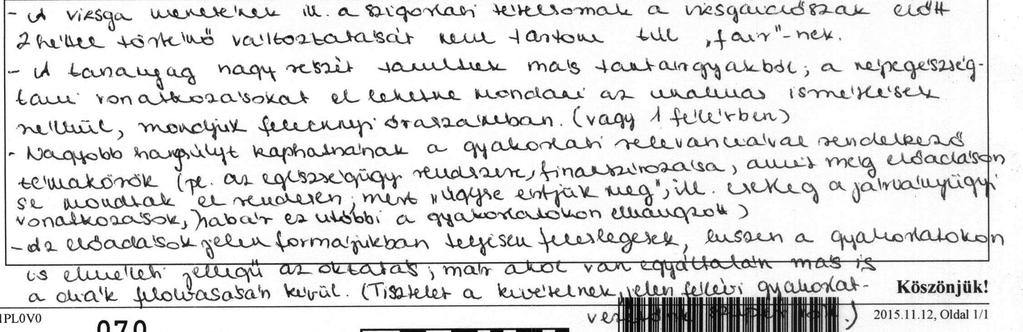 - A vizsga menetének ill. a szigorlati tételsornak a vizsgaidőszak előtt
2 héttel történő változtatását nem tartom túl „fair"-nek.
- A tananyag nagy részét tanultuk más tantárgyakból; a népegészség-
tani vonatkozásokat el lehetne mondani az unalmas ismétlések
nélkül, mondjuk feleennyi óraszámban. (vagy 1 félévben)
- Nagyobb hangsúlyt kaphatnának a gyakorlati relevanciával rendelkező
témakörök (pl. az egészségügy rendszere, finanszírozása, amit még előadáson
se mondtak el rendesen, mert „úgyse értjük meg", ill. esetleg a járványügyi
vonatkozások, habár ez utóbbi a gyakorlatokon elhangzott)
- Az előadások jelen formájukban teljesen feleslegesek, hiszen a gyakorlatokon
is elméleti jellegű az oktatás; már ahol van egyáltalán más is
a diák felolvasásán kívül. (Tisztelet a kivételnek, jelen félévi gyakorlat-
Köszönjük!
1PL0V0
070
2015.11.12, Oldal 1/1